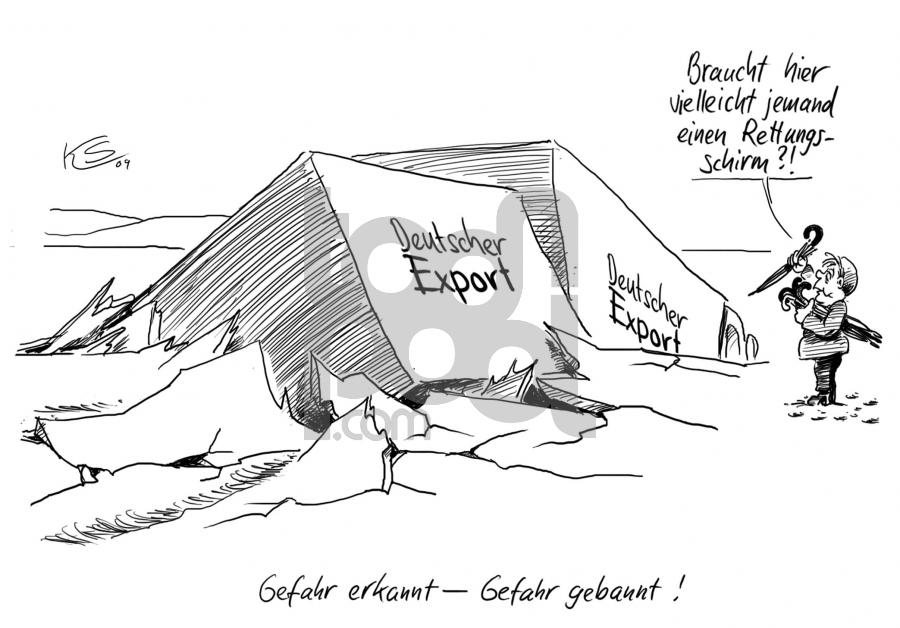 Braucht hier
vielleicht jemand
einen Rettungs-
schirm?!
KS 09
Deutscher
Export
Deutscher
Export
toonpool.com
Gefahr erkannt – Gefahr gebannt!